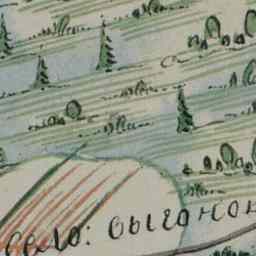 село: выгонон